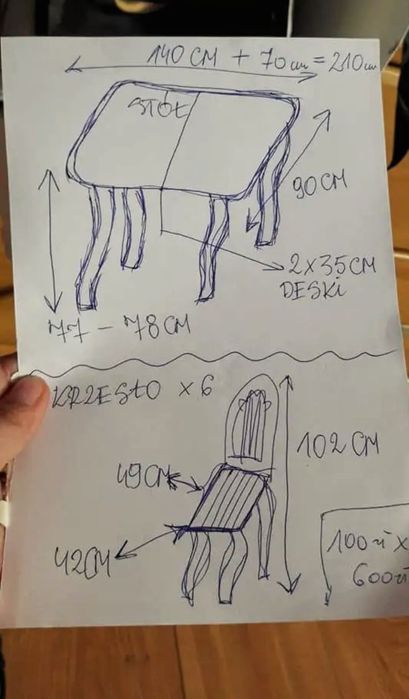 140 CM + 70 cm = 210 cm
STÓŁ
90 CM
2 x 35 CM
DESKI
77 - 78 CM
KRZESŁO x 6
102 CM
49 CM
42 CM
100 zł x
600 zł